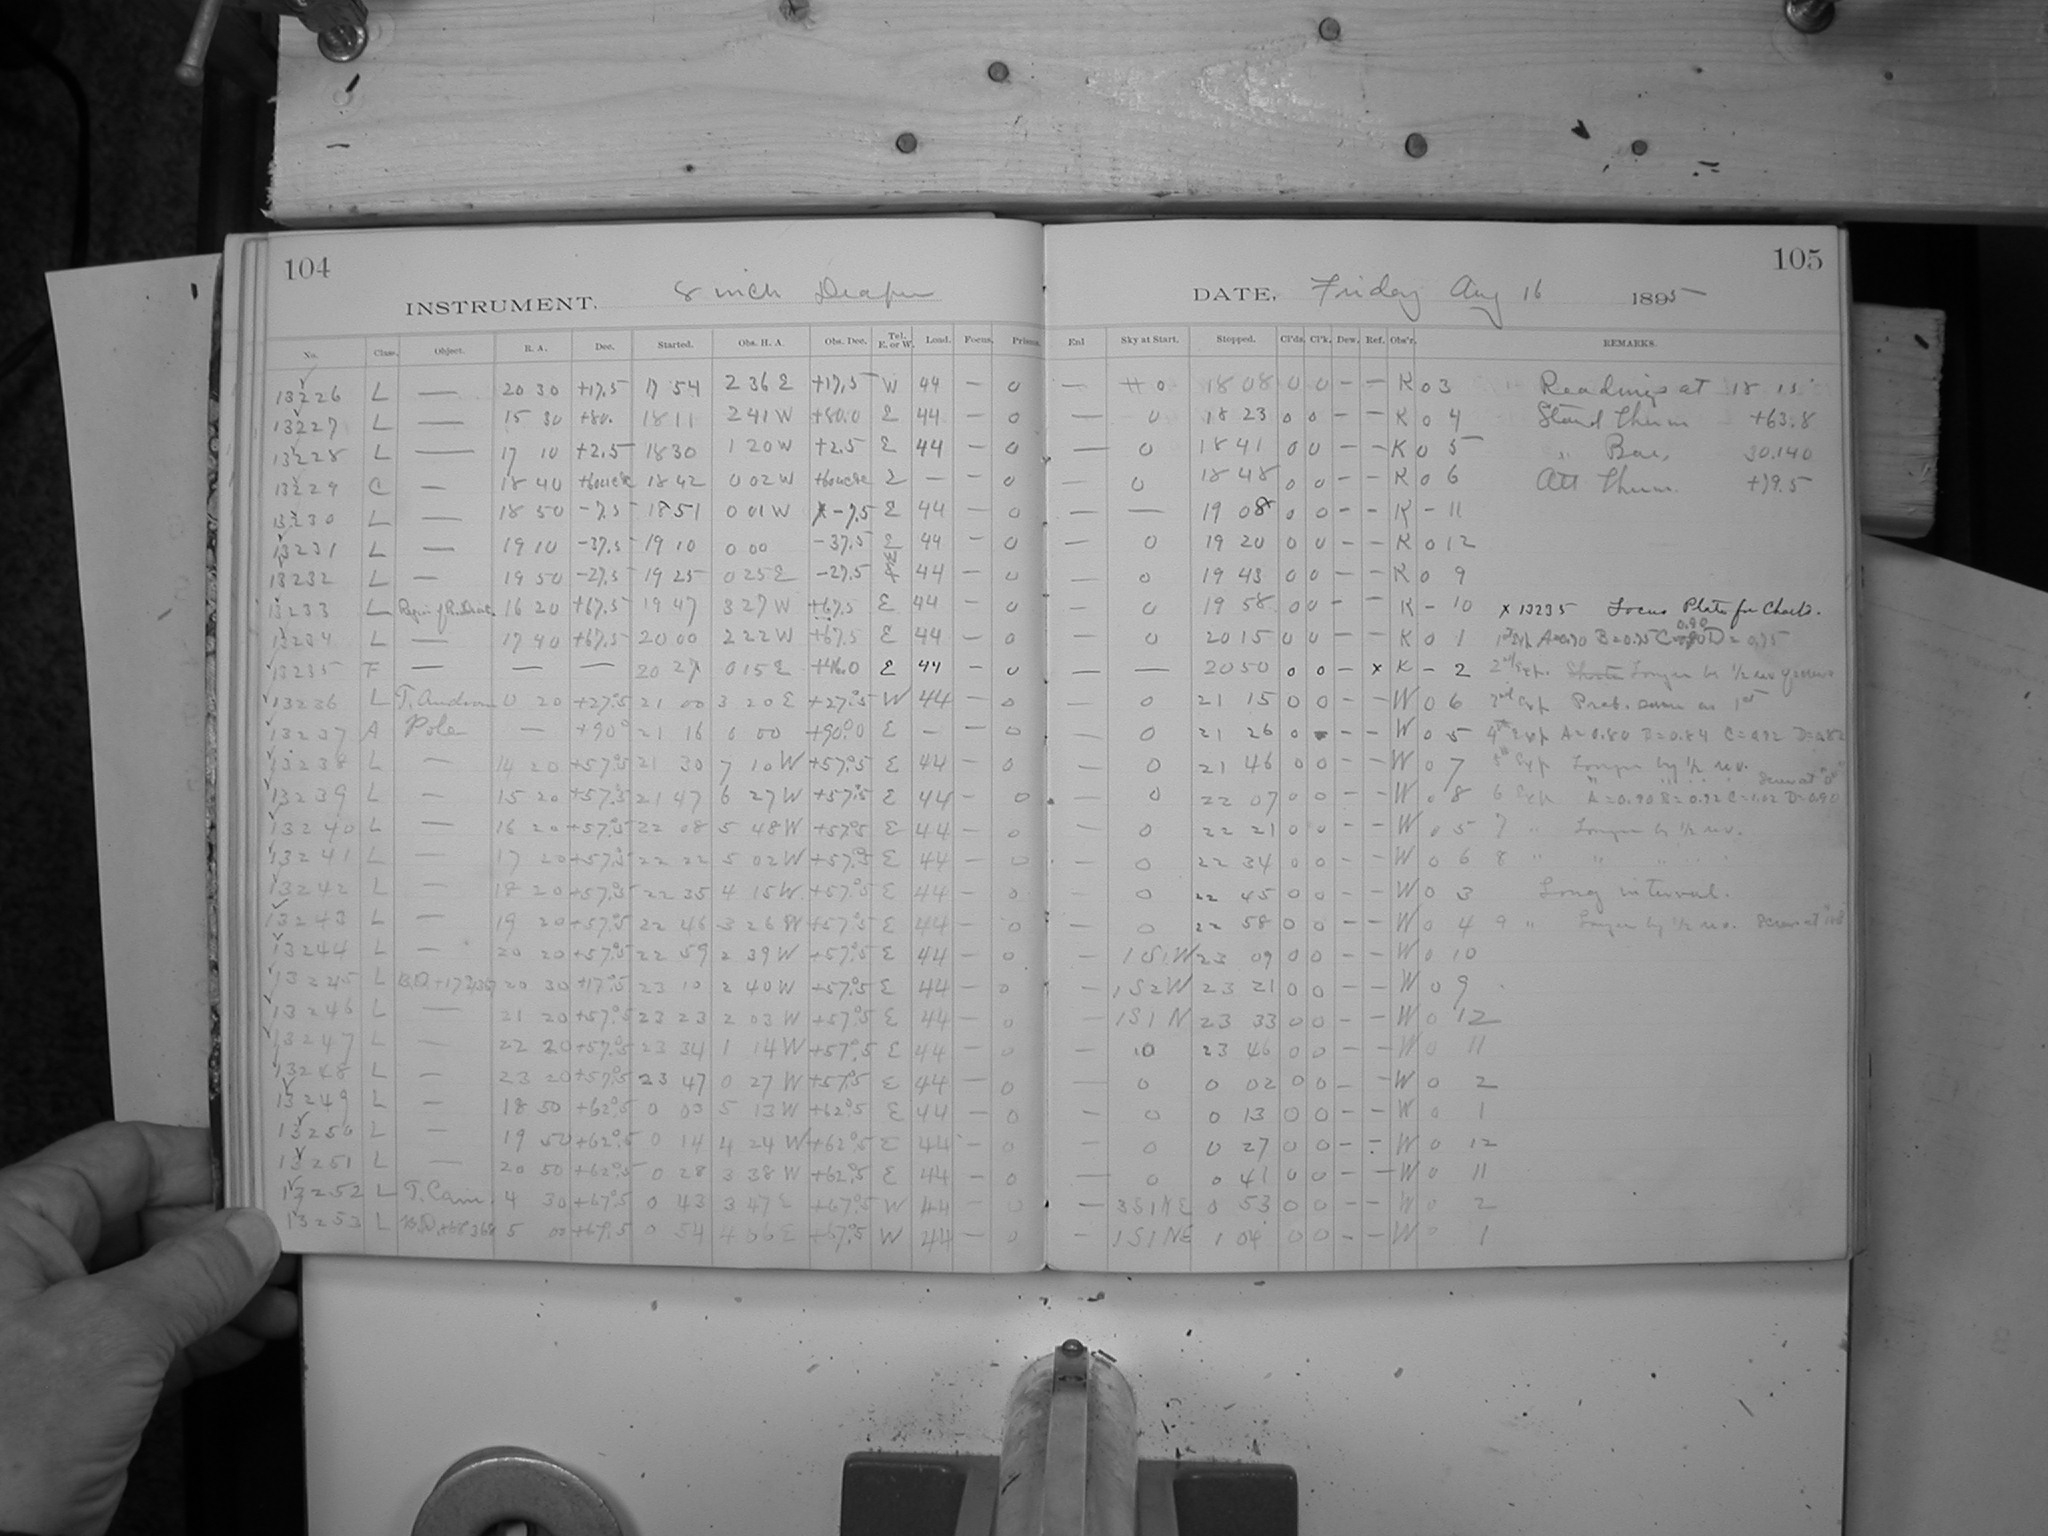 104
INSTRUMENT. 8 inch Draper
No. Class. Object. R. A. Dec. Started. Obs. H. A. Obs. Dec. Tel. E. or W. Load. Focus. Prisms.
13226 L — 20 30 +17.5 17 54 2 36 E +17.5 W 44 — 0
13227 L — 15 30 +80. 18 11 2 41 W +80.0 E 44 — 0
13228 L — 17 10 +2.5 18 30 1 20 W +2.5 E 44 — 0
13229 C — 18 40 18 42 0 02 W E — — 0
13230 L — 18 50 -7.5 18 51 0 01 W -7.5 E 44 — 0
13231 L — 19 10 -37.5 19 10 0 00 -37.5 E 44 — 0
13232 L — 19 50 -27.5 19 25 0 25 E -27.5 44 — 0
13233 L 16 20 +67.5 19 47 3 27 W +67.5 E 44 — 0
13234 L — 17 40 +67.5 20 00 2 22 W +67.5 E 44 — 0
13235 F — — — 20 27 0 15 E +46.0 E 44 — 0
13236 L T. Androm 0 20 +27.5 21 00 3 20 E +27.5 W 44 — 0
13237 A Pole — +90° 21 16 0 00 +90.0 E — — 0
13238 L — 14 20 +57.5 21 30 7 10 W +57.5 E 44 — 0
13239 L — 15 20 +57.5 21 47 6 27 W +57.5 E 44 — 0
13240 L — 16 20 +57.5 22 08 5 48 W +57.5 E 44 — 0
13241 L — 17 20 +57.5 22 22 5 02 W +57.5 E 44 — 0
13242 L — 18 20 +57.5 22 35 4 15 W +57.5 E 44 — 0
13243 L — 19 20 +57.5 22 46 3 26 W +57.5 E 44 — 0
13244 L — 20 20 +57.5 22 59 2 39 W +57.5 E 44 — 0
13245 L 20 30 +17.5 23 10 2 40 W +57.5 E 44 — 0
13246 L — 21 20 +57.5 23 23 2 03 W +57.5 E 44 — 0
13247 L — 22 20 +57.5 23 34 1 14 W +57.5 E 44 — 0
13248 L — 23 20 +57.5 23 47 0 27 W +57.5 E 44 — 0
13249 L — 18 50 +62.5 0 03 5 13 W +62.5 E 44 — 0
13250 L — 19 50 +62.5 0 14 4 24 W +62.5 E 44 — 0
13251 L — 20 50 +62.5 0 28 3 38 W +62.5 E 44 — 0
13252 L T. Cam. 4 30 +67.5 0 43 3 47 E +67.5 W 44 — 0
13253 L 5 00 +67.5 0 54 4 06 E +67.5 W 44 — 0
105
DATE, Friday Aug 16 1895
Enl Sky at Start. Stopped. Cl'ds. Cl'k. Dew. Ref. Obs'r. REMARKS.
— 0 18 08 0 0 — — K 0 3 Readings at 18 15
— 0 18 23 0 0 — — K 0 4 Stand Therm +63.8
— 0 18 41 0 0 — — K 0 5 " Bar. 30.140
— 0 18 48 0 0 — — K 0 6 Att Therm. +79.5
— — 19 08 0 0 — — K — 11
— 0 19 20 0 0 — — K 0 12
— 0 19 43 0 0 — — K 0 9
— 0 19 58 0 0 — — K — 10 x 13235 Focus Plate for Charts.
— 0 20 15 0 0 — — K 0 1 1st Exp A=0.90 B=0.75 C=0.90 D=0.75
— — 20 50 0 0 — x K — 2 2nd Exp. Longer by 1/2 rev of screw
— 0 21 15 0 0 — — W 0 6 3rd Exp Prob. same as 1st
— 0 21 26 0 — — W 0 5 4th Exp A=0.80 B=0.84 C=0.92 D=0.82
— 0 21 46 0 0 — — W 0 7 5th Exp Longer by 1/2 rev.
— 0 22 07 0 0 — — W 0 8 6 Exp A=0.90 B=0.92 C=1.02 D=0.90 Screw at "0"
— 0 22 21 0 0 — — W 0 5 7 " Longer by 1/2 rev.
— 0 22 34 0 0 — — W 0 6 8 " "
— 0 22 45 0 0 — — W 0 3 Long interval.
— 0 22 58 0 0 — — W 0 4 9 " Longer by 1/2 rev. Screw at
— 1 S1W 23 09 0 0 — — W 0 10
— 1 S2W 23 21 0 0 — — W 0 9
— 1S1N 23 33 0 0 — — W 0 12
— 0 23 46 0 0 — — W 0 11
— 0 0 02 0 0 — — W 0 2
— 0 0 13 0 0 — — W 0 1
— 0 0 27 0 0 — — W 0 12
— 0 0 41 0 0 — — W 0 11
— 3S1NE 0 53 0 0 — — W 0 2
— 1S1NE 1 04 0 0 — — W 0 1